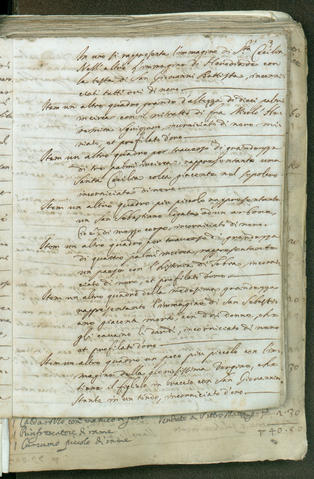 In uno si rappresenta l'immagine di S.ta Cecilia
Nell'altro l'immagine di Herodiade con
la testa di San Giovanni Battista, incorni
ciati tutti doi di nero
Item un altro quadro grande d'altezza di dieci palmi
incirca con il ritratto di
incorniciato di nero
et profilato d'oro
Item un altro quadro per traverso di grandezza
di tre palmi incirca rappresentante una
Santa Cecilia colca, piacente nel sepolcro
incorniciato di nero
Item un altro quadro più piccolo rappresentante
un San Sebastiano legato ad un arbore,
cioè di mezzo corpo, incorniciato di nero
Item un altro quadro per traverso di grandezza
di quattro palmi incirca, rappresentante
un paese con l'historia di Tobia, incorni
ciato di nero, et profilato d'oro
Item un altro quadro della medesima grandezza
rappresentante l'immagine di San Sebasti
ano piacona morto con doi donne, che
gli cacciano li dardi, incorniciato di nero
et profilato d'oro
Item un altro quadro un poco più piccolo con l'im
magine della gloriosissima Vergine, che
tiene il figliolo in braccio con San Giovanni
stante in un tondo, incorniciato d'oro
1 Caldarotto con manico
1 Rinfrescatore di rame
1 piccolo di rame
2-30
40-60